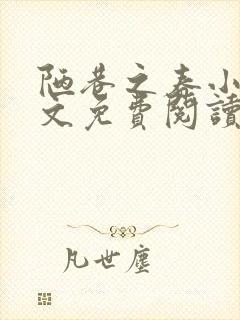 陋巷之春小
文免費閱讀
凡世塵